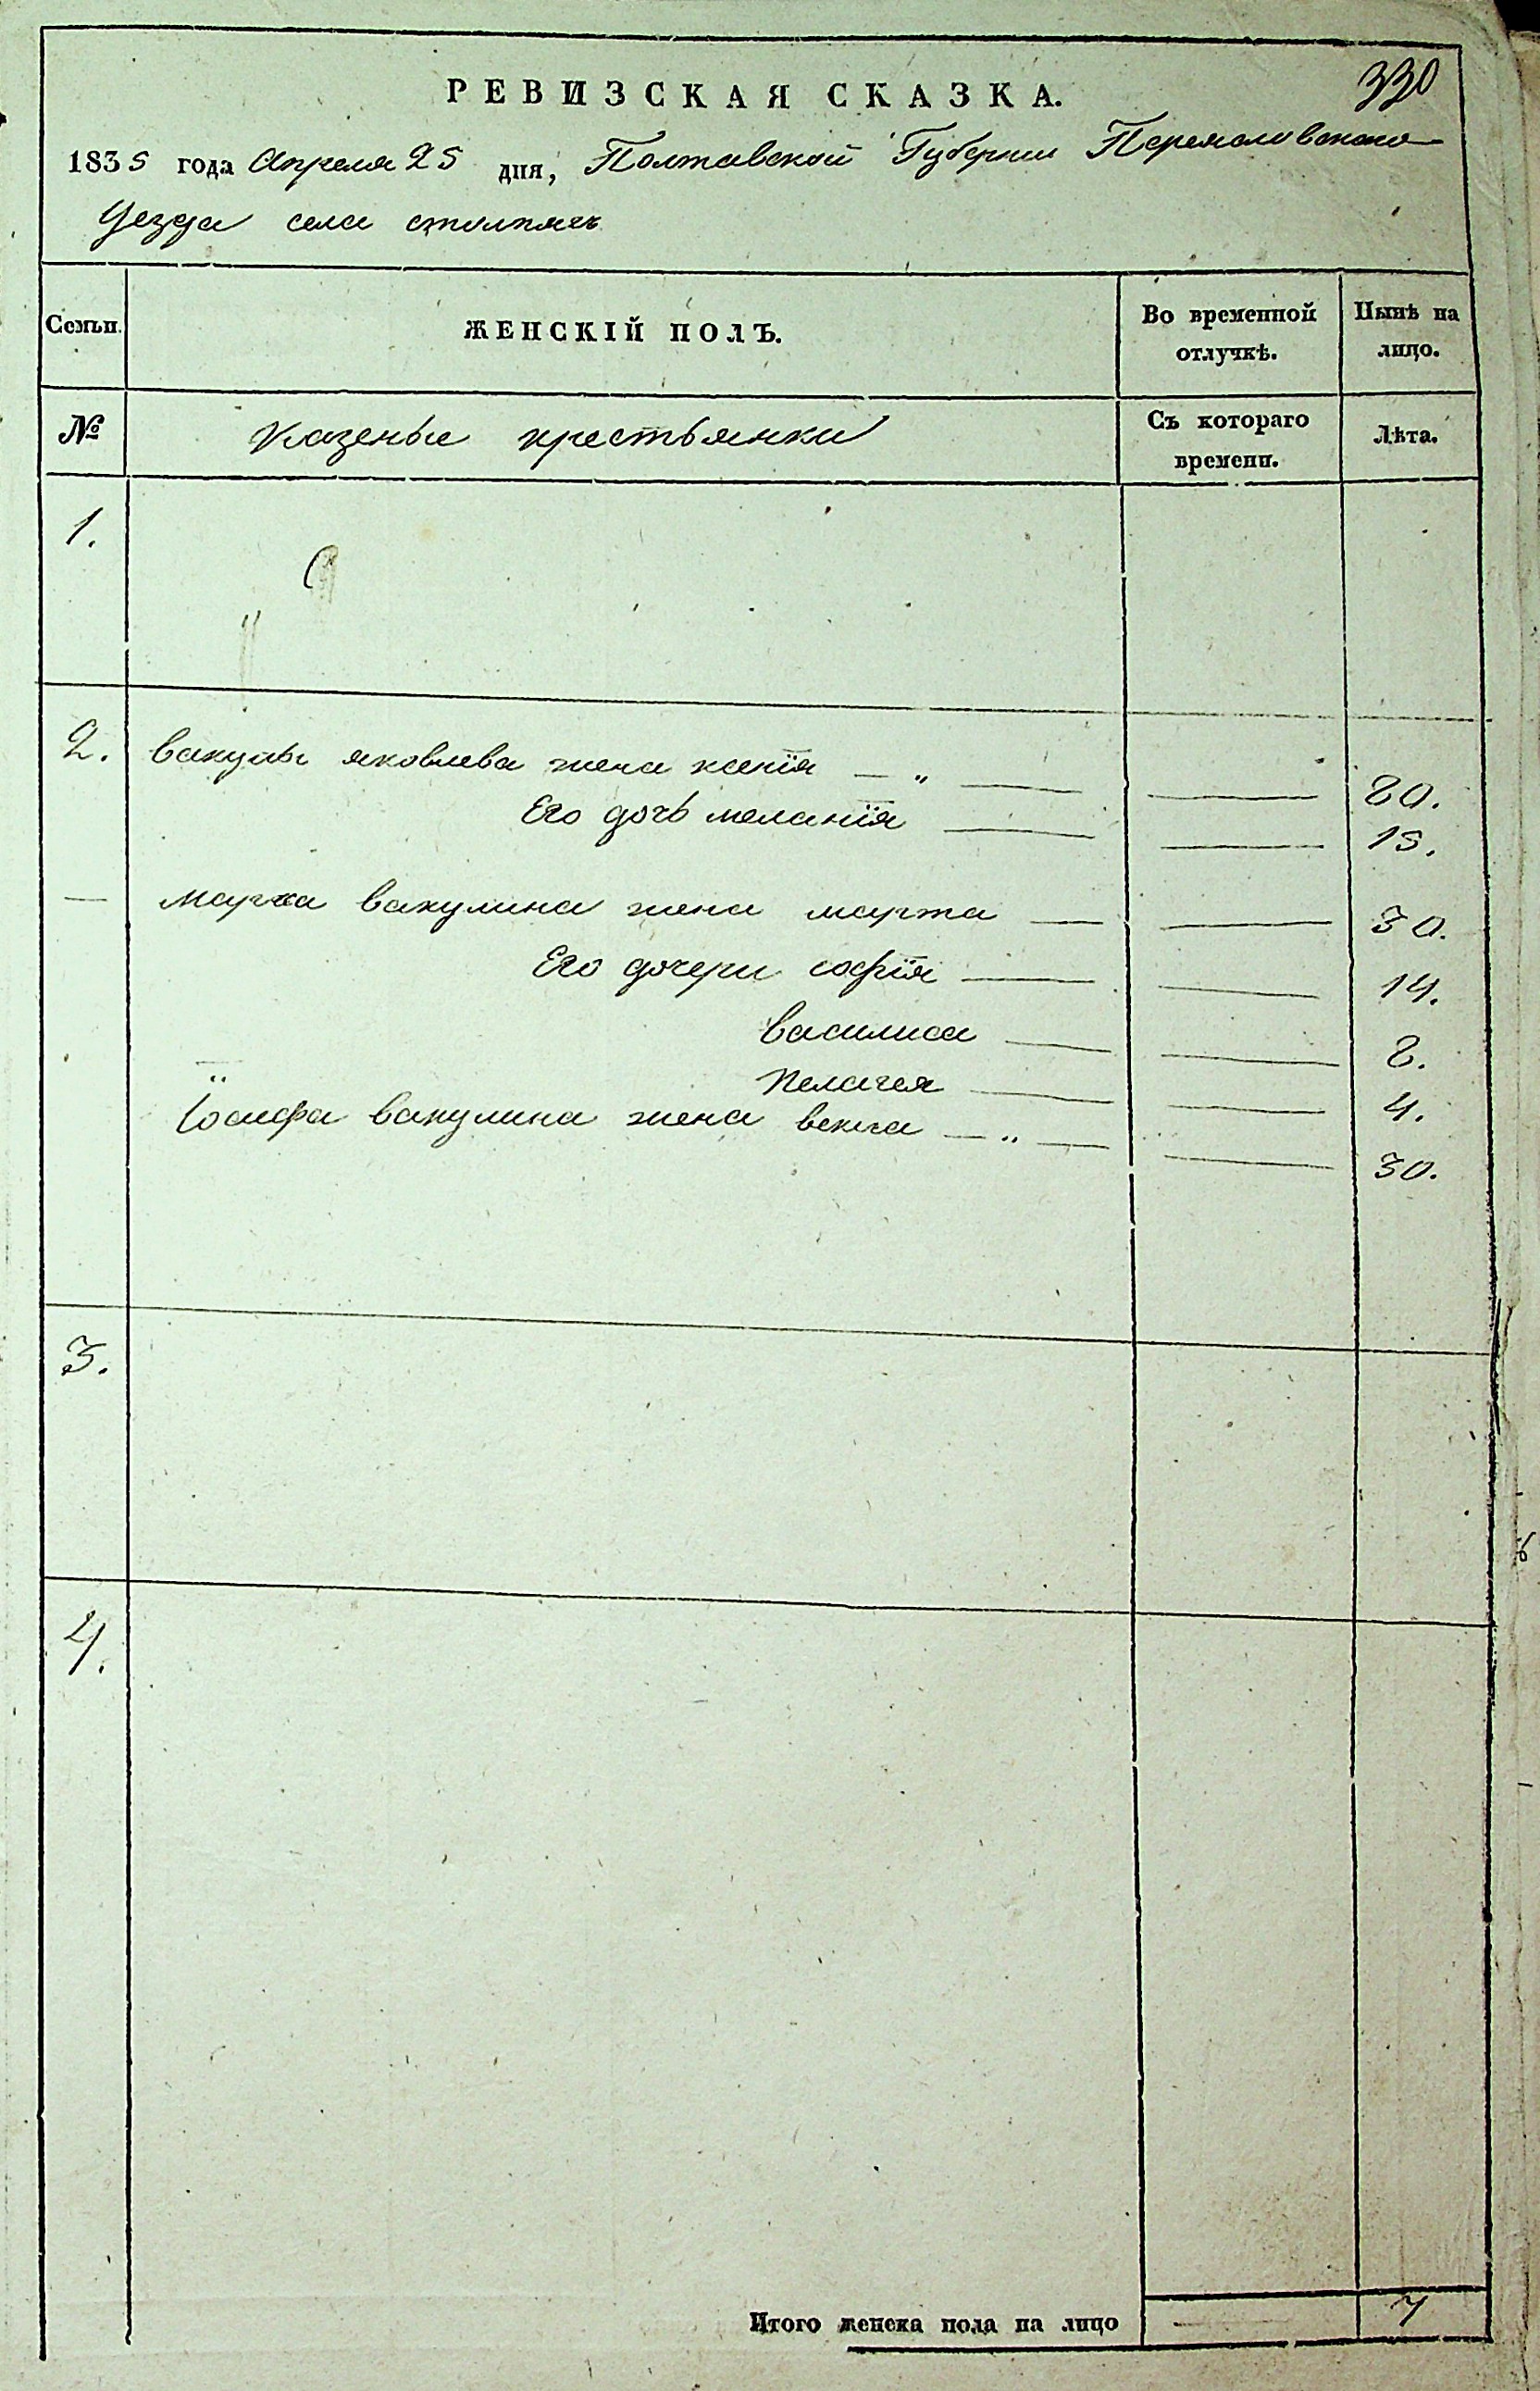 330
РЕВИЗСКАЯ СКАЗКА.
1835 года Апреля 25 дня, Полтавской Губернии Переяславского
Уезда села столпягъ
Семьи. ЖЕНСКІЙ ПОЛЪ. Во временной отлучкѣ. Нынѣ на лицо.
№ Казеные крестьянки Съ котораго времени. Лѣта.
1.
2. вакулы яковлева жена ксенїя — „ — — 80.
Его дочь меланїя — — 15.
— марка вакулина жена марта — — 30.
Его дочери софїя — — 14.
василиса — — 8.
пелагея — — 4.
Їосифа вакулина жена — „ — — 30.
3.
4.
Итого женска пола на лицо — 7